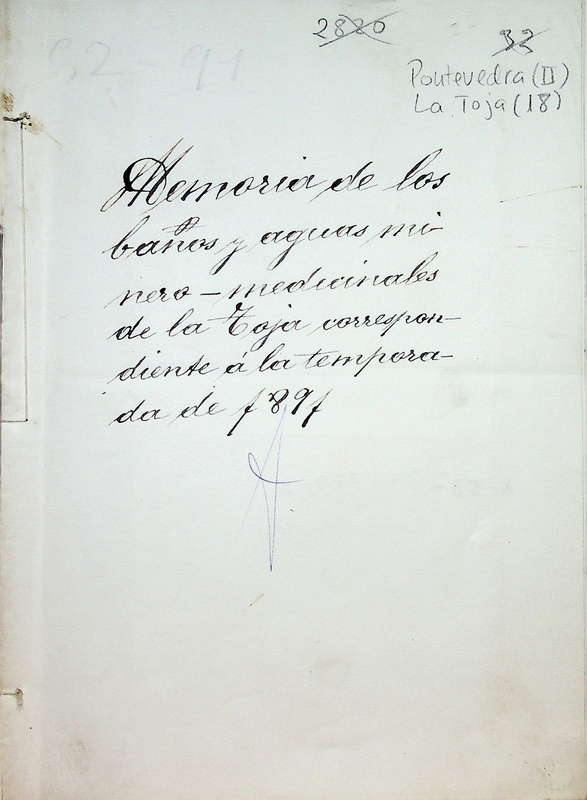 2820
32
52-91
Pontevedra (II)
La Toja (18)
Memoria de los
baños y aguas mi-
nero-medicinales
de la Toja correspon-
diente á la tempora-
da de 1891